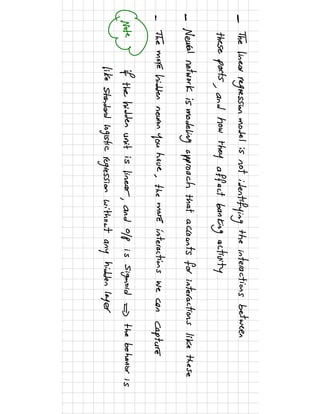 - The linear regression model is not identifying the interactions between
these parts, and how they affect banking activity
- Neural network is modeling approach that accounts for interactions like these
- The more hidden neuron you have, the more interactions we can capture
Note
if the hidden unit is linear, and o/p is sigmoid ⇒ the behavior is
like standard logistic regression without any hidden layer